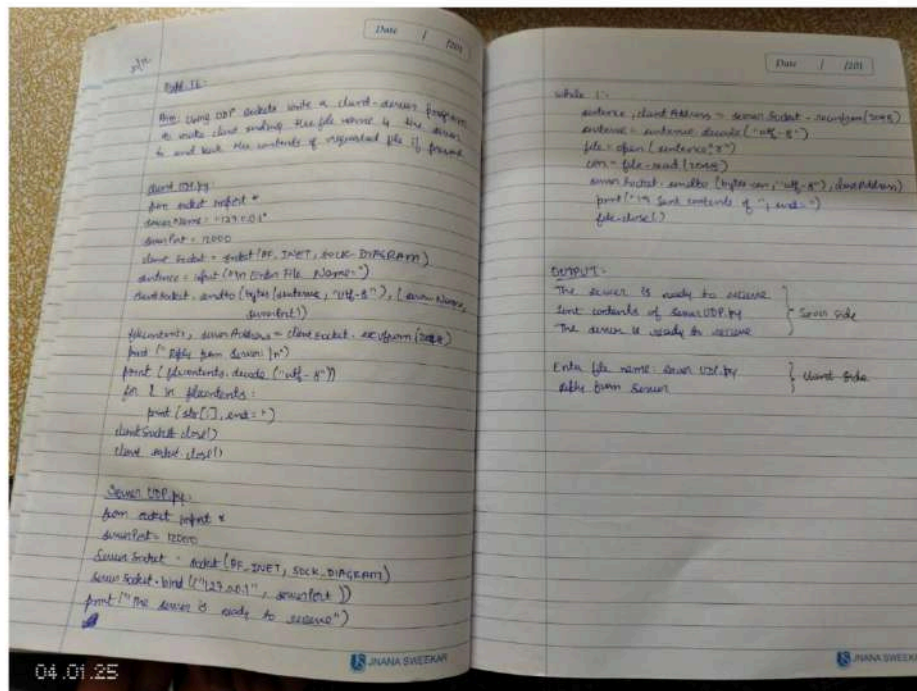 Date / /201
Expt. 16:
Aim: Using UDP sockets write a client-server program
to make client sending the file name & the server
to send back the contents of requested file if present
client UDP.py:
from socket import *
serverName = "127.0.0.1"
serverPort = 12000
clientSocket = socket(AF_INET, SOCK_DIAGRAM)
sentence = input("\n Enter File Name: ")
clientSocket.sendto(bytes(sentence, "utf-8"), (serverName,
serverPort))
filecontents, serverAddress = clientSocket.recvfrom(2048)
print("Reply from Server: \n")
print(filecontents.decode("utf-8"))
for i in filecontents:
print(str(i), end = ' ')
clientSocket.close()
client socket.close()
Server UDP.py:
from socket import *
serverPort = 12000
ServerSocket = socket(AF_INET, SOCK_DIAGRAM)
serverSocket.bind(("127.0.0.1", serverPort))
print("The server is ready to receive")
JNANA SWEEKAR
04.01.25
Date / /201
while 1:
sentence, clientAddress = serverSocket.recvfrom(2048)
sentence = sentence.decode("utf-8")
file = open(sentence, "r")
con = file.read(2048)
serverSocket.sendto(bytes(con, "utf-8"), clientAddress)
print("\n Sent contents of ", end = ' ')
file.close()
OUTPUT:
The server is ready to receive
Sent contents of serverUDP.py
The server is ready to receive
Server side
Enter file name: server UDP.py
Reply from Server
client side
JNANA SWEEKAR